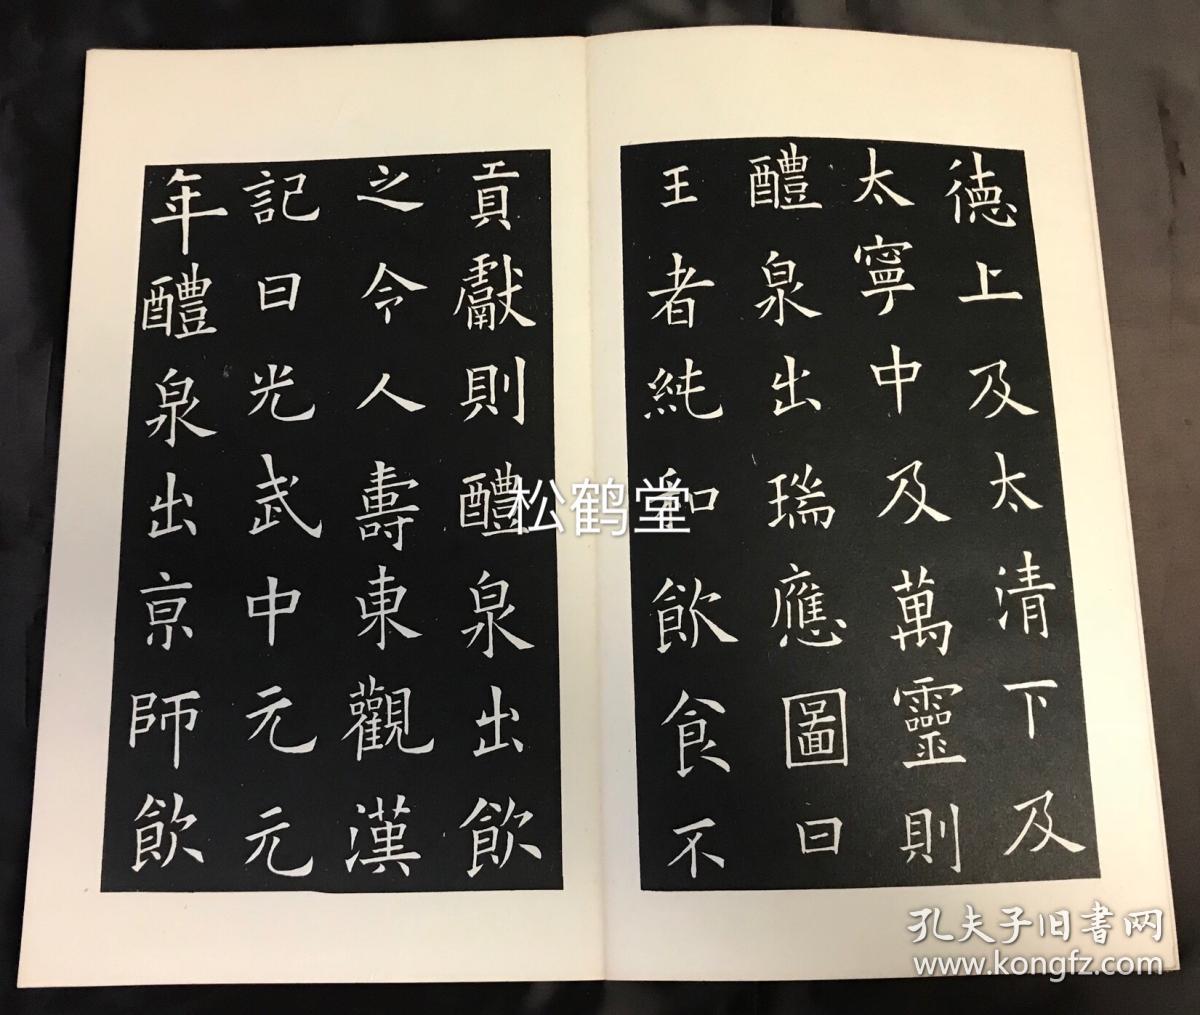 德上及太清下及
太寧中及萬靈則
醴泉出瑞應圖曰
王者純和飲食不
貢獻則醴泉出飲
之令人壽東觀漢
記曰光武中元元
年醴泉出京師飲
松鹤堂
孔夫子旧书网
www.kongfz.com